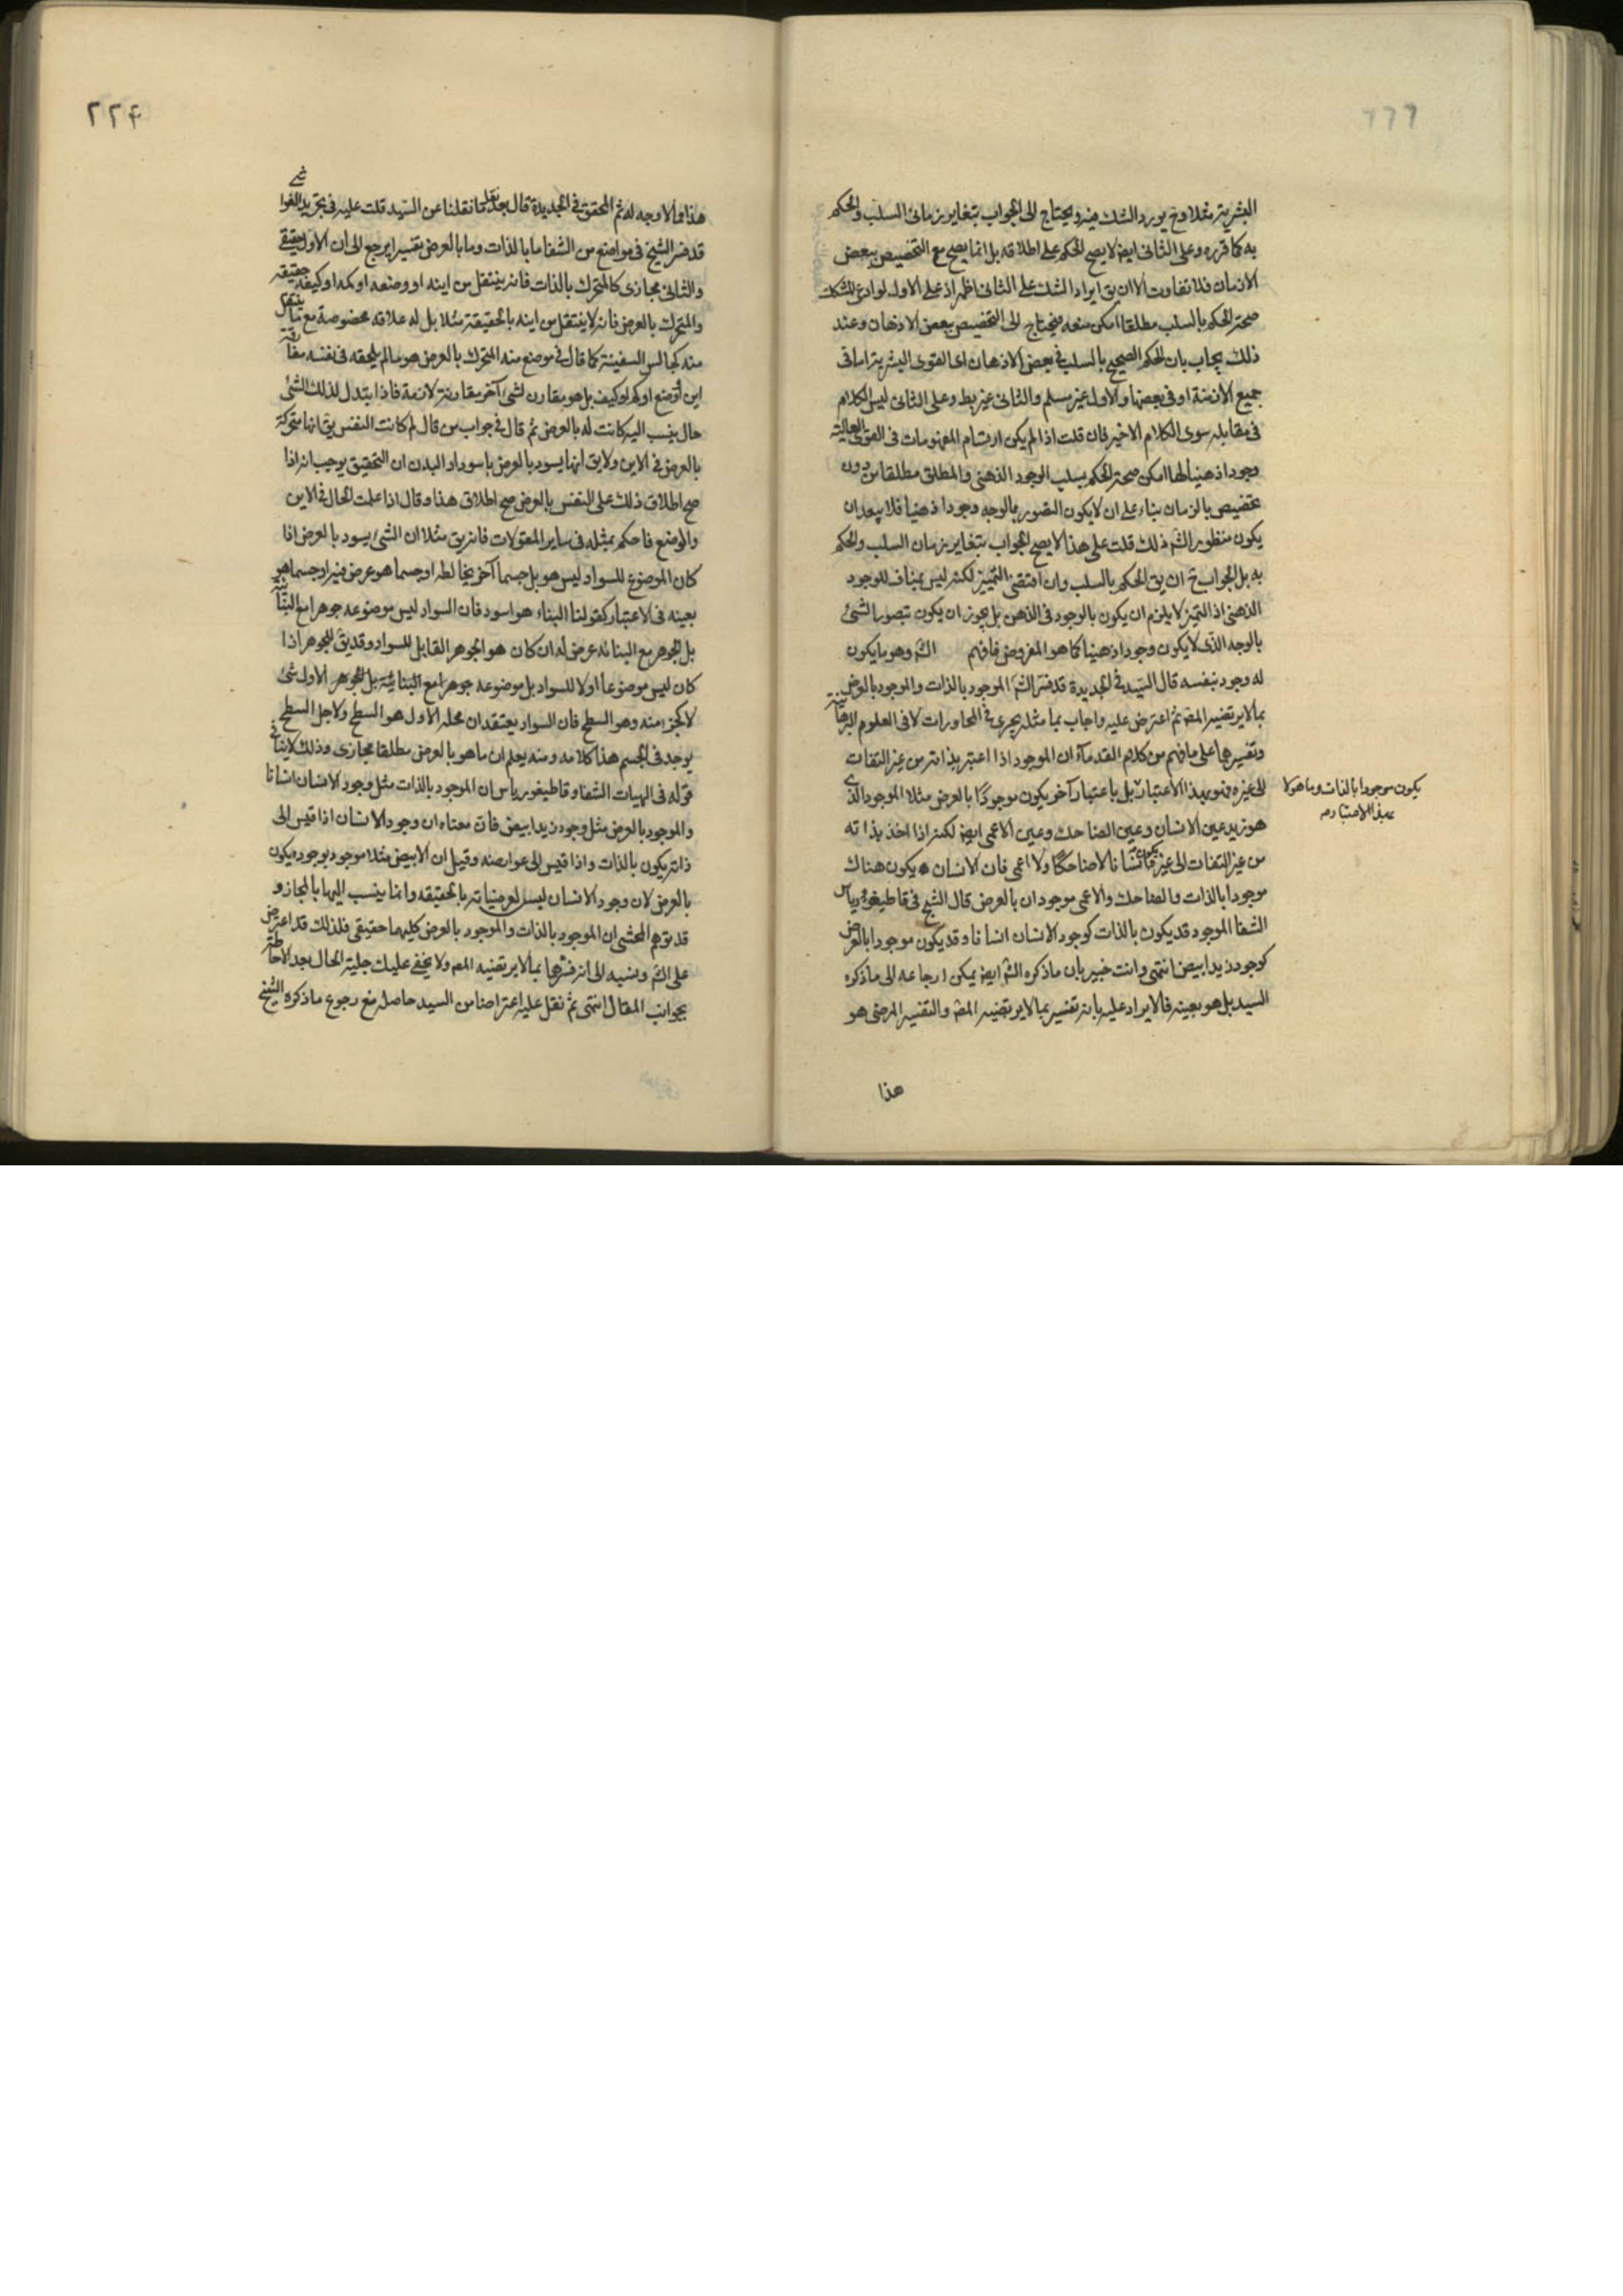 البشرية مثلا وح يورد الشك فيه ويحتاج الى الجواب بتغاير زمانى السلب والحكم
به كما قرره وعلى الثانى ايض لا يصح الحكم على اطلاقه بل انما يصح مع التخصيص ببعض
الازمان فلا تفاوت الا ان يق ايراد الشك على الثانى اظهر اذ على الاول لو ادعى المشكك
صحة الحكم بالسلب مطلقا امكن منعه فيحتاج الى التخصيص ببعض الاذهان وعند
ذلك يجاب بان الحكم الصحيح بالسلب فى بعض الاذهان اى القوى البشرية اما فى
جميع الازمنة او فى بعضها والاول غير مسلم والثانى غير بط وعلى الثانى ليس الكلام
فى مقابله سوى الكلام الاخير فان قلت اذا لم يكن ارتسام المفهومات فى القوى العالية
وجودا ذهنيا لها امكن صحة الحكم بسلب الوجود الذهنى والمطلق مطلقا من دون
تخصيص بالزمان بناء على ان لا يكون التصور بالوجه وجودا ذهنيا فلا يبعد ان
يكون منظور الش ذلك قلت على هذا لا يصح الجواب بتغاير زمان السلب والحكم
به بل الجواب ح ان يق الحكم بالسلب وان اقتضى التميز لكنه ليس بمناف للوجود
الذهنى اذ التميز لا يلزم ان يكون بالوجود فى الذهن بل يجوز ان يكون بتصور الشئ
بالوجه الذى لا يكون وجودا ذهنيا كما هو المفروض فافهم الش وهو ما يكون
له وجود بنفسه قال السيد فى الجديدة قد فسر الش الموجود بالذات والموجود بالعرض
بما لا يرتضيه المص ثم اعترض عليه واجاب بما مثله يجرى فى المحاورات لا فى العلوم البرهانية
وتفسيرهما على ما فهم من كلام القدماء ان الموجود اذا اعتبر بذاته من غير التفات
الى غيره فهو بهذا الاعتبار بل باعتبار آخر يكون موجودا بالعرض مثلا الموجود الذى
يكون موجودا بالذات وما هو لا
بهذا الاعتبار صه
هو زيد عين الانسان وعين الضاحك وعين الاعمى ايض لكنه اذا اخذ بذاته
من غير التفات الى غيره يكون انسانا لا ضاحكا ولا اعمى فان الانسان يكون هناك
موجودا بالذات والضاحك والاعمى موجودان بالعرض قال الشيخ فى قاطيغورياس
الشفا الموجود قد يكون بالذات كوجود الانسان انسانا وقد يكون موجودا بالعرض
كوجود زيد ابيض انتهى وانت خبير بان ما ذكره الش ايض يمكن ارجاعه الى ما ذكره
السيد بل هو بعينه فالايراد عليه بانه تفسير بما لا يرتضيه المص والتفسير المرضى هو
هذا
٢٢۴
هذا مما لا وجه له ثم المحقق فى الجديدة قال بعد نقل ما نقلنا عن السيد قلت عليه فى تجريد الغواشى
قد فسر الشيخ فى مواضع من الشفا ما بالذات وما بالعرض بتفسير يرجع الى ان الاول حقيقى
والثانى مجازى كالمتحرك بالذات فانه ينتقل من اينه او وضعه او كمه او كيفه حقيقة
والمتحرك بالعرض فانه لا ينتقل من اينه بالحقيقة مثلا بل له علاقة مخصوصة مع ما ينتقل
منه كجالس السفينة كما قال فى موضع منه المتحرك بالعرض هو ما لم يلحقه فى نفسه مفارقة
اين او وضع او كم او كيف بل هو مقارن لشئ آخر مقارنة لازمة فاذا تبدل لذلك الشئ
حال ينسب اليه كانت له بالعرض ثم قال فى جواب من قال لم كانت النفس يق انها متحركة
بالعرض فى الاين ولا يق انها يسود بالعرض باسوداد البدن ان التحقيق يوجب انه اذا
صح اطلاق ذلك على النفس بالعرض صح اطلاق هذا وقال اذا علمت الحال فى الاين
والوضع فاحكم بمثله فى ساير المقولات فانه يق مثلا ان الشئ يسود بالعرض اذا
كان الموضوع للسواد ليس هو بل جسما آخر يخالطه او جسما هو عرض فيه او جسما هو
بعينه فى الاعتبار كقولنا البناء هو اسود فان السواد ليس موضوعه جوهرا مع البنائية
بل الجوهر مع البنائية عرض له ان كان هو الجوهر القابل للسواد وقد يق للجوهر اذا
كان ليس موضوعا اولا للسواد بل موضوعه جوهرا مع البنائية بل الجوهر الاول شئ
لا كجزء منه وهو السطح فان السواد يعتقد ان محله الاول هو السطح ولاجل السطح
يوجد فى الجسم هذا كلامه ومنه يعلم ان ما هو بالعرض مطلقا مجازى وذلك لا ينافى
قوله فى الهيات الشفا وقاطيغورياس ان الموجود بالذات مثل وجود الانسان انسانا
والموجود بالعرض مثل وجود زيد ابيض فان معناه ان وجود الانسان اذا قيس الى
ذاته يكون بالذات واذا قيس الى عوارضه وقيل ان الابيض مثلا موجود بوجوده يكون
بالعرض لان وجود الانسان ليس لعرضياته بالحقيقة وانما ينسب اليها بالمجاز و
قد توهم المحشى ان الموجود بالذات والموجود بالعرض كليهما حقيقى فلذلك قد اعترض
على الش ونسبه الى انه فسرهما بما لا يرتضيه المص ولا يخفى عليك جلية الحال بعد الاحاطة
بجوانب المقال انتهى ثم نقل عليه اعتراضا من السيد حاصله منع رجوع ما ذكره الشيخ